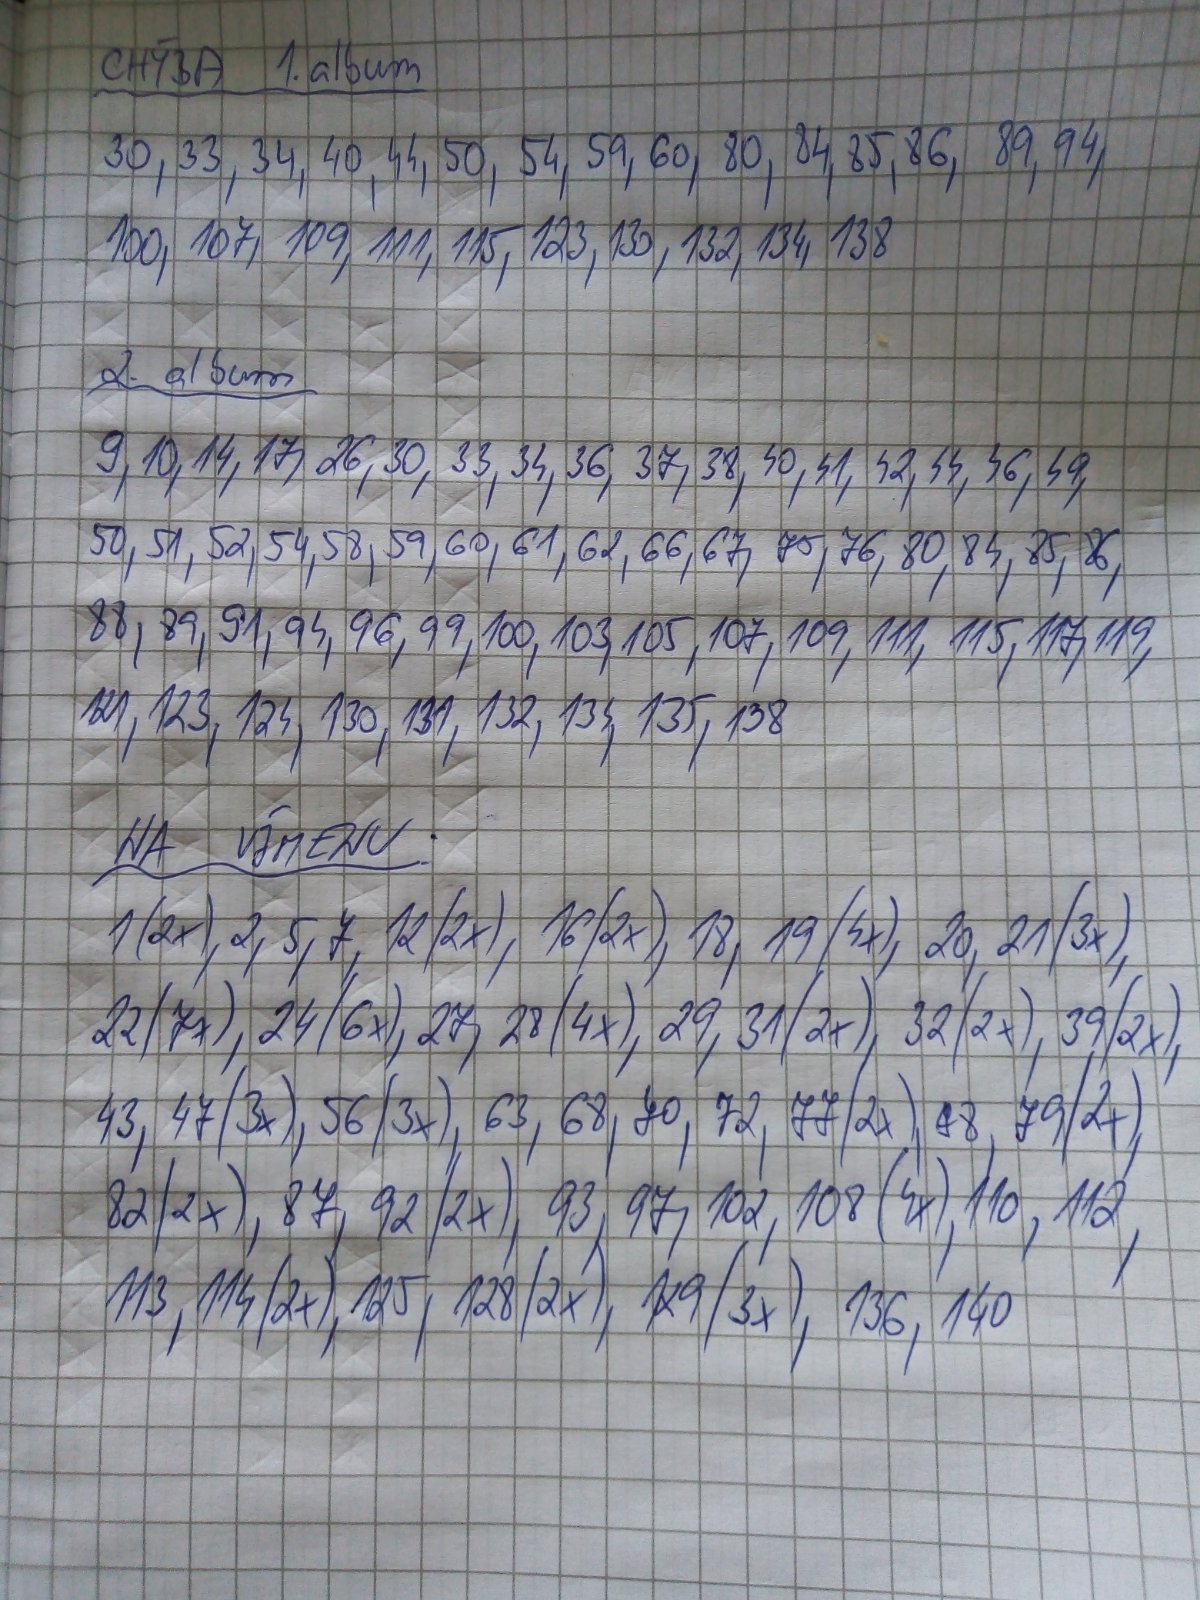 CHÝBA 1. album
30, 33, 34, 40, 44, 50, 54, 59, 60, 80, 84, 85, 86, 89, 94,
100, 107, 109, 111, 115, 123, 130, 132, 134, 138
2. album
9, 10, 14, 17, 26, 30, 33, 34, 36, 37, 38, 40, 41, 42, 44, 46, 49,
50, 51, 52, 54, 58, 59, 60, 61, 62, 66, 67, 75, 76, 80, 84, 85, 86,
88, 89, 91, 94, 96, 99, 100, 103, 105, 107, 109, 111, 115, 117, 119,
121, 123, 124, 130, 131, 132, 134, 135, 138
NA VÝMENU:
1(2x), 2, 5, 7, 12(2x), 16(2x), 18, 19(4x), 20, 21(3x),
22(7x), 24(6x), 27, 28(4x), 29, 31(2x), 32(2x), 39(2x),
43, 47(3x), 56(3x), 63, 68, 70, 72, 77(2x), 78, 79(2x),
82(2x), 87, 92(2x), 93, 97, 102, 108(4x), 110, 112,
113, 114(2x), 125, 128(2x), 129(3x), 136, 140